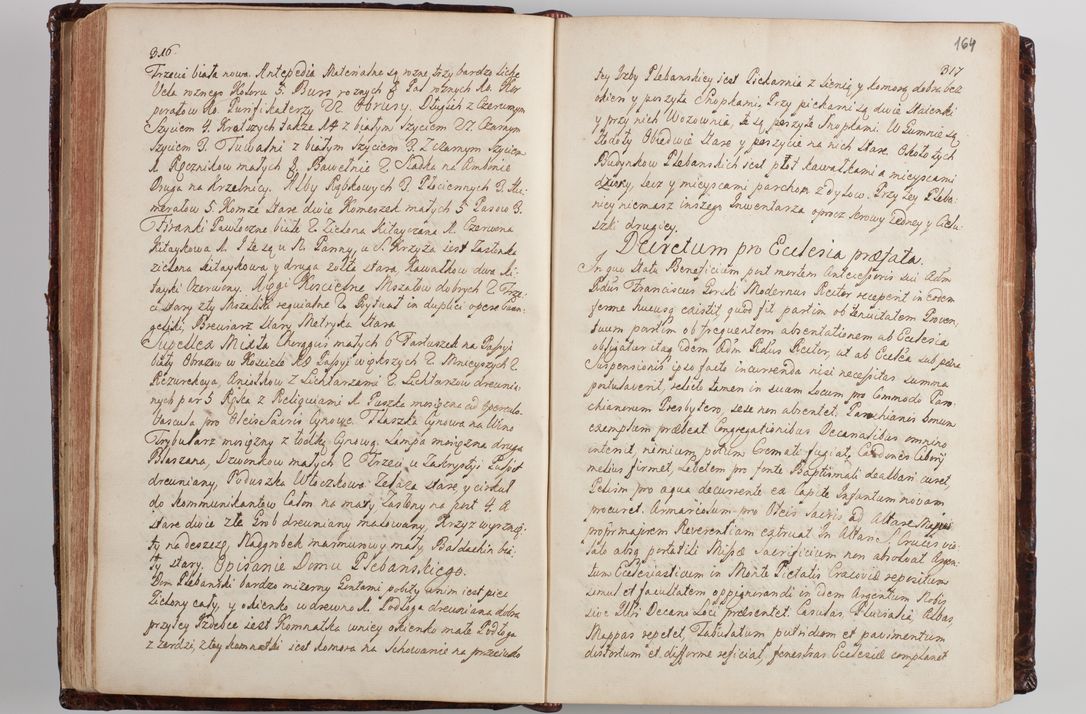 316.
Trzeci biała nowa. Antepedia Materialne są rozne, trzy bardzo liche
Vela roznego Koloru 5. Burs roznych 8 Pal roznych 10. Kor
porałow 10. Purifikaterzy 22 Obrusy. Długich z Czerwonym
Szyciem 4. Krotszych także 14 z białym szyciem 27. Czarnym
Szyciem 3. Tuwalni z białym szyciem 3. Z Czarnym Szyciem
1. Ręcznikow małych 8 Bawełnic 2 Siatka na Ambonie
Druga na Krzesnicy. Alby Rąbkowych 3 Płociennych 3. Hu-
merałow 5. Komże stare dwie Komeszek małych 5 Pasow 3.
Firanki Pawłoczne białe 2 Zielona Kitayczana 1. Czerwona
Kitaykowa 1. I te są u N. Panny, u S. Krzyża iest Zasłonka
zielona Kitaykowa y druga żołta stara, Kawałkow dwa Ki-
tayki Czerwony. Xięgi Koscielne Mszałow dobrych 2 Trze-
ci stary zły Mszeliki requialne 2 Rytuał in duplici opere Ewan-
geliki, Brewiarz stary Metryka stara
Supellex Miasta Chorągwi małych 6 Fartuszek na Passyi
biały Obrazow w Kosciele 18 Passyi większych 2 Mnieyszych 2
Rezurekcya, Aniołkow z Lichtarzami 2 Lichtarzow drewnia-
nych par 5 Roska z Reliquiami 1. Puszka mosięzna ad operculo
Vascula pro Oleis Sacris Cynowe. Flaszka Cynowa na Wino
Trybularz mosięzny z łodką Cynową. Lampa mosięzna druga
Blaszana, Dzwonkow małych 2 Trzeci u Zakrystyi Pulpit
drewniany, Poduszka Włoczkowa Żelaza stare, y cirkuł
do kommunikantow Całun na mary Zasłony na post 4. A
stare dwie złe Grob drewniany malowany, Krzyz wyrznię-
ty na deszczo, Nadgrobek marmurowy mały, Baldachin bia-
ły stary. Opisanie Domu Plebanskiego.
Dom Plebanski bardzo mizerny Gontami pobity w nim iest piec
Zielony cały, y okienko w drewno 1. Podłoga drewniana dobra
przy tey Izdebce iest Komnatka w niey okienko małe Podłoga
z żerdzi, z tey komnatki iest komora na Schowanie na przeciwko
164
317
tey Izby Plebanskiey iest Piekarnia z Sienią y komorą dobra bez
okien y poszyta Snopkami. Przy piekarni są dwie Staienki
y przy nich Wozownia, te są poszyte Snopkami. W Gumnie są
Stodoły Obiedwie stare y poszycie na nich stare. Około tych
Budynkow Plebanskich iest płot kawałkami a mieyscami
dziury, lecz y mieyscami parchan z dylow. Przy tey Pleba-
nicy niemasz inszego Inwentarza oprocz Krowy Iedney y Cielu-
szki drugiey.
Decretum pro Ecclesia præfata.
In quo statu Beneficium post mortem Antecessoris sui Adm
Rndus Franciscus Gorski Modernus Rector recepent in eodem
ferme hucusq existit, quod fit partim ob tenuitatem Proven,
tuum partim ob frequentem absentationem ab Ecclesia
obligatur itaq idem Adm Rndus Rector, ut ab Ecclesia sub pæna
Suspensionis ipso facto incurrenda nisi necessitas summa
postulaverit, relicto tamen in suum Locum pro Commodo Paro-
chianorum Presbytero, sese non absentet, Parochianis bonum
exemplum præbeat Congregationibus Decanalibus omnino
intersit, nemium potum Cremati fugiat, Cardones Ciborij
melius firmet, Lebetem pro fonte Baptismali dealbari curet,
Pelvim pro aqua decurrente ex Capite Infantum novam
procuret. Armariolum pro Oleis Sacris ad Altare Majus
propr majorem Reverentiam extruat. In Altari S. Crucis vio-
lato absq portatili Missæ Sacrificium non absolvat Argen-
tum Ecclesiasticum in Monte Pietatis Cracoviæ repositum
simul et facultatem oppignorandi in idem Argentum Nobis
sive Illri Decano Loci præsentet. Casulas, Pluvialia, Albas,
Mappas reparet, Tabulatum putridum et pavimentum
distortum et difforme reficiat, fenestras Ecclesiæ complanet